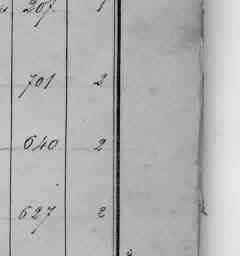 207 1
701 2
640 2
627 2